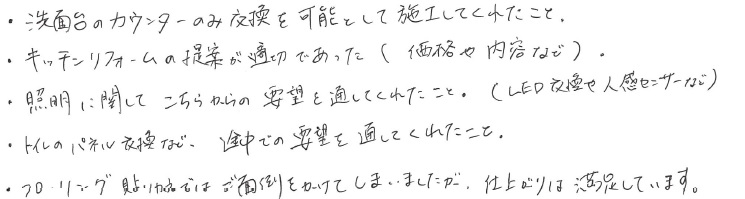 ・洗面台のカウンターのみ交換を可能として施工してくれたこと.
・キッチンリフォームの提案が適切であった(価格や内容など).
・照明に関してこちらからの要望を通してくれたこと。(LED交換や人感センサーなど)
・トイレのパネル交換など、途中での要望を通してくれたこと.
・フローリング貼り加工ではご面倒をかけてしまいましたが、仕上がりは満足しています。